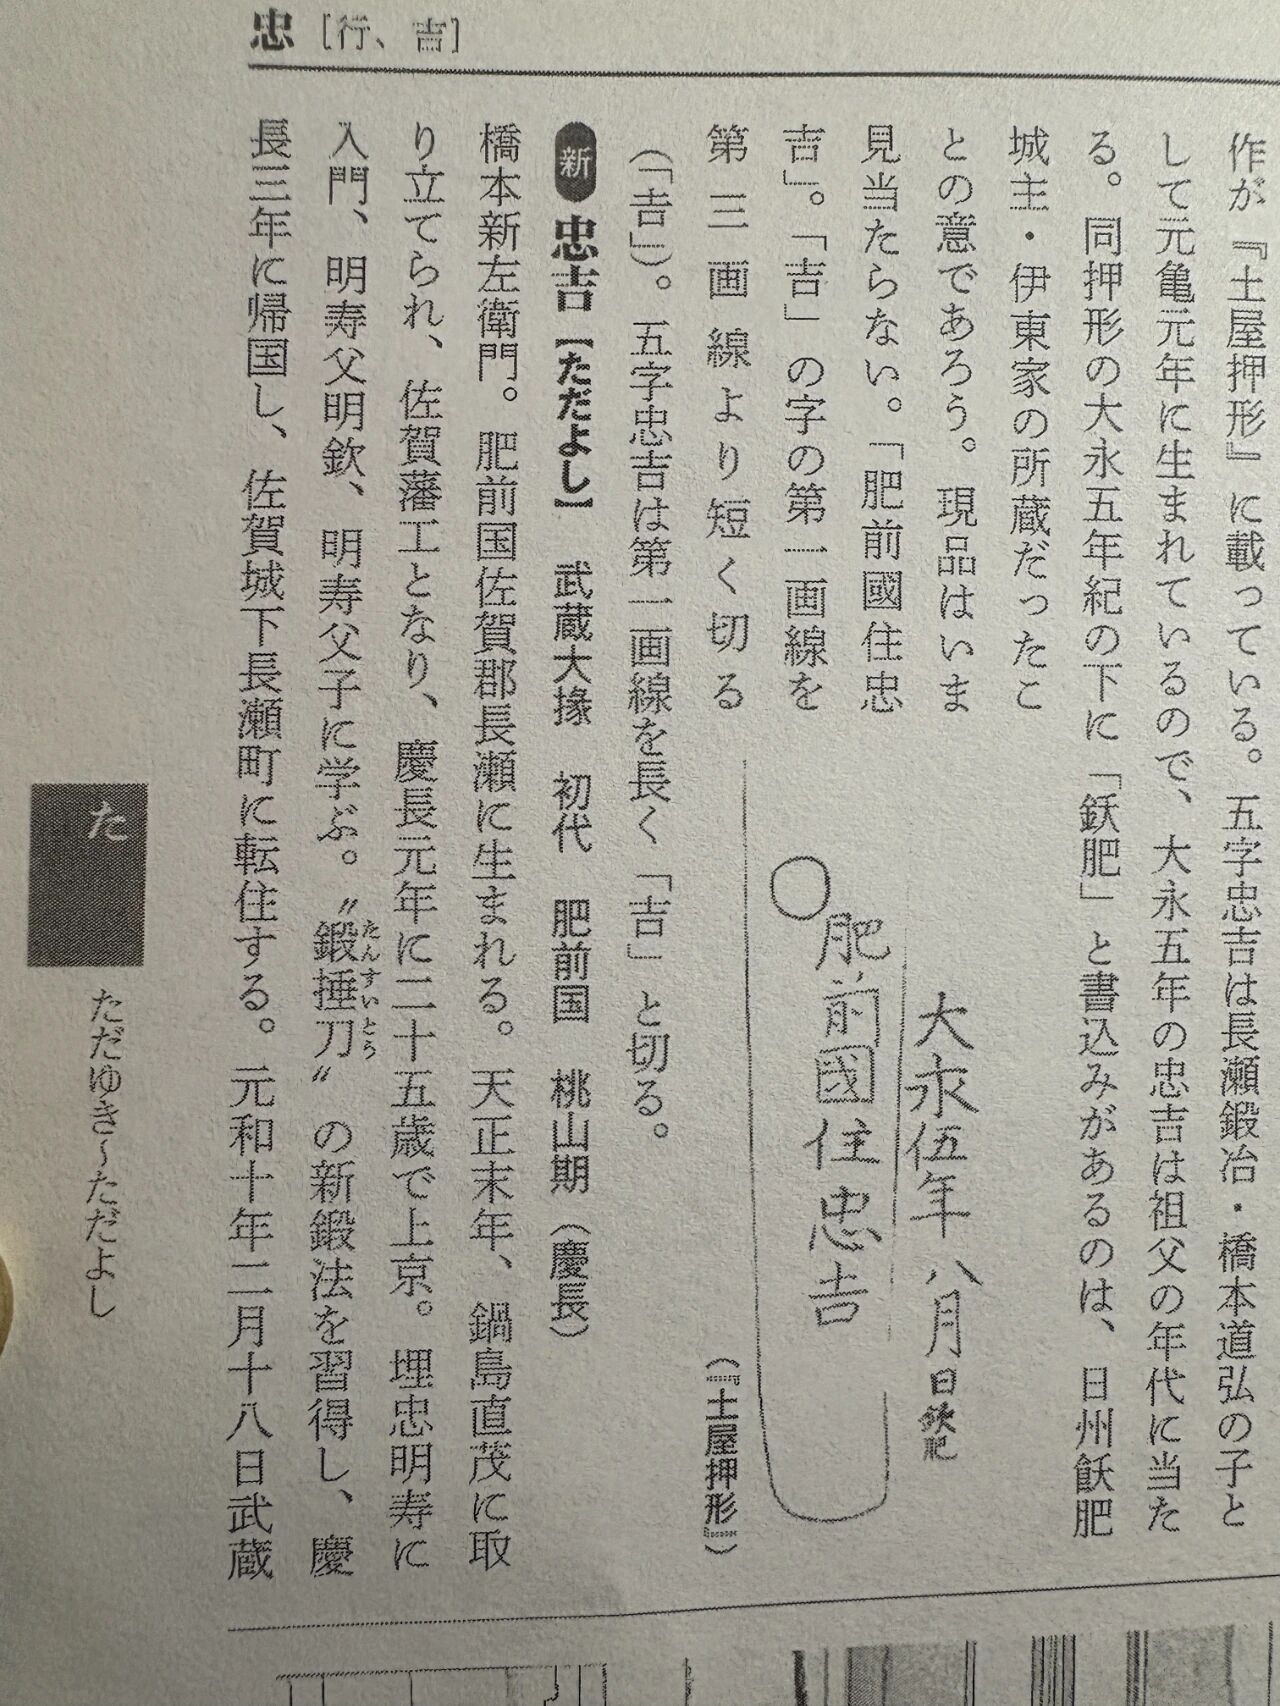 忠［行、吉］
作が『土屋押形』に載っている。五字忠吉は長瀬鍛冶・橋本道弘の子と
して元亀元年に生まれているので、大永五年の忠吉は祖父の年代に当た
る。同押形の大永五年紀の下に「鈬肥」と書込みがあるのは、日州飫肥
城主・伊東家の所蔵だったこ
との意であろう。現品はいま
見当たらない。「肥前國住忠
吉」。「吉」の字の第一画線を
第三画線より短く切る
（「吉」）。五字忠吉は第一画線を長く「吉」と切る。
大永伍年八月日
肥前國住忠吉
（『土屋押形』）
新 忠吉【ただよし】 武蔵大掾 初代 肥前国 桃山期（慶長）
橋本新左衛門。肥前国佐賀郡長瀬に生まれる。天正末年、鍋島直茂に取
り立てられ、佐賀藩工となり、慶長元年に二十五歳で上京。埋忠明寿に
入門、明寿父明欽、明寿父子に学ぶ。〝鍛捶刀〟の新鍛法を習得し、慶
たんすいとう
長三年に帰国し、佐賀城下長瀬町に転住する。元和十年二月十八日武蔵
た
ただゆき～ただよし